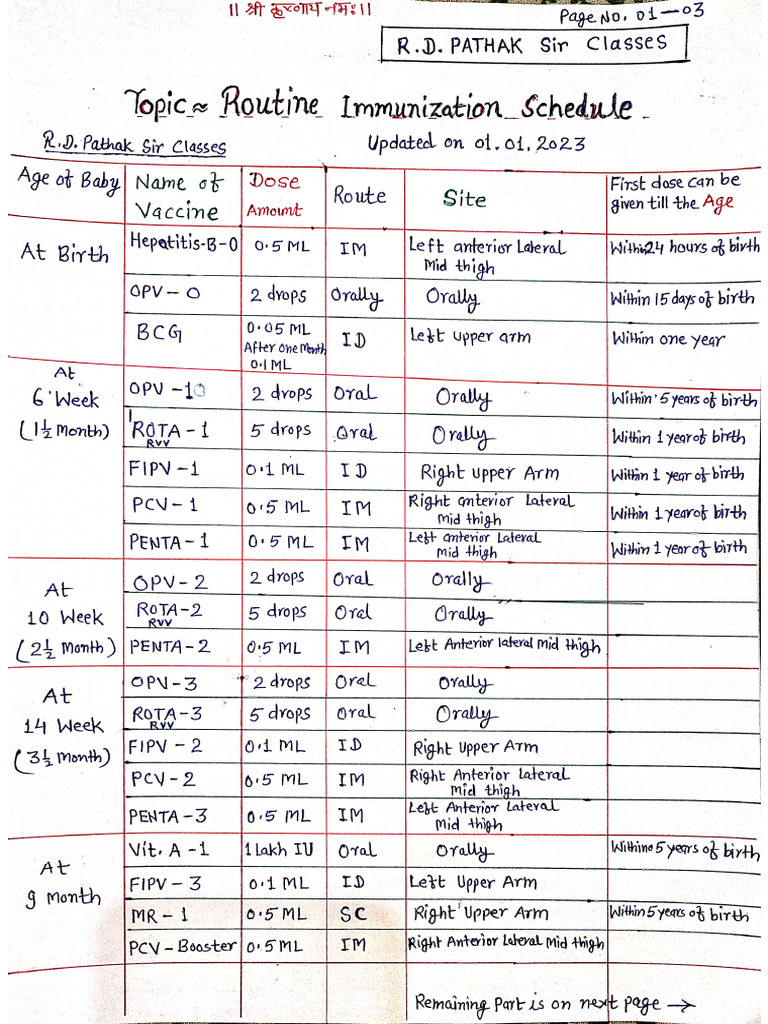 ।। श्री कृष्णाय नमः।।
Page No. 01-03
R.D. PATHAK Sir Classes
Topic ≈ Routine Immunization Schedule
R.D. Pathak Sir Classes
Updated on 01.01.2023
Age of Baby | Name of Vaccine | Dose Amount | Route | Site | First dose can be given till the Age
At Birth | Hepatitis-B-0 | 0.5 ML | IM | Left anterior Lateral Mid thigh | Within 24 hours of birth
OPV-0 | 2 drops | Orally | Orally | Within 15 days of birth
BCG | 0.05 ML After one Month 0.1 ML | ID | Left upper arm | Within one year
At 6 Week (1½ Month) | OPV-1 | 2 drops | Oral | Orally | Within 5 years of birth
ROTA-1 RVV | 5 drops | Oral | Orally | Within 1 year of birth
FIPV-1 | 0.1 ML | ID | Right Upper Arm | Within 1 year of birth
PCV-1 | 0.5 ML | IM | Right anterior Lateral Mid thigh | Within 1 year of birth
PENTA-1 | 0.5 ML | IM | Left anterior Lateral Mid thigh | Within 1 year of birth
At 10 Week (2½ Month) | OPV-2 | 2 drops | Oral | Orally
ROTA-2 RVV | 5 drops | Oral | Orally
PENTA-2 | 0.5 ML | IM | Left Anterior lateral Mid thigh
At 14 Week (3½ Month) | OPV-3 | 2 drops | Oral | Orally
ROTA-3 RVV | 5 drops | Oral | Orally
FIPV-2 | 0.1 ML | ID | Right Upper Arm
PCV-2 | 0.5 ML | IM | Right Anterior Lateral Mid thigh
PENTA-3 | 0.5 ML | IM | Left Anterior Lateral Mid thigh
At 9 Month | Vit. A-1 | 1 lakh IU | Oral | Orally | Within 5 years of birth
FIPV-3 | 0.1 ML | ID | Left Upper Arm
MR-1 | 0.5 ML | SC | Right Upper Arm | Within 5 years of birth
PCV-Booster | 0.5 ML | IM | Right Anterior Lateral Mid thigh
Remaining Part is on next page →